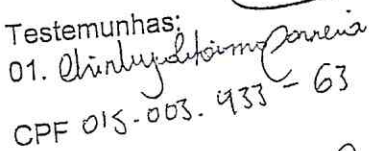 Testemunhas:
01. Correia
CPF 015.003.933-63